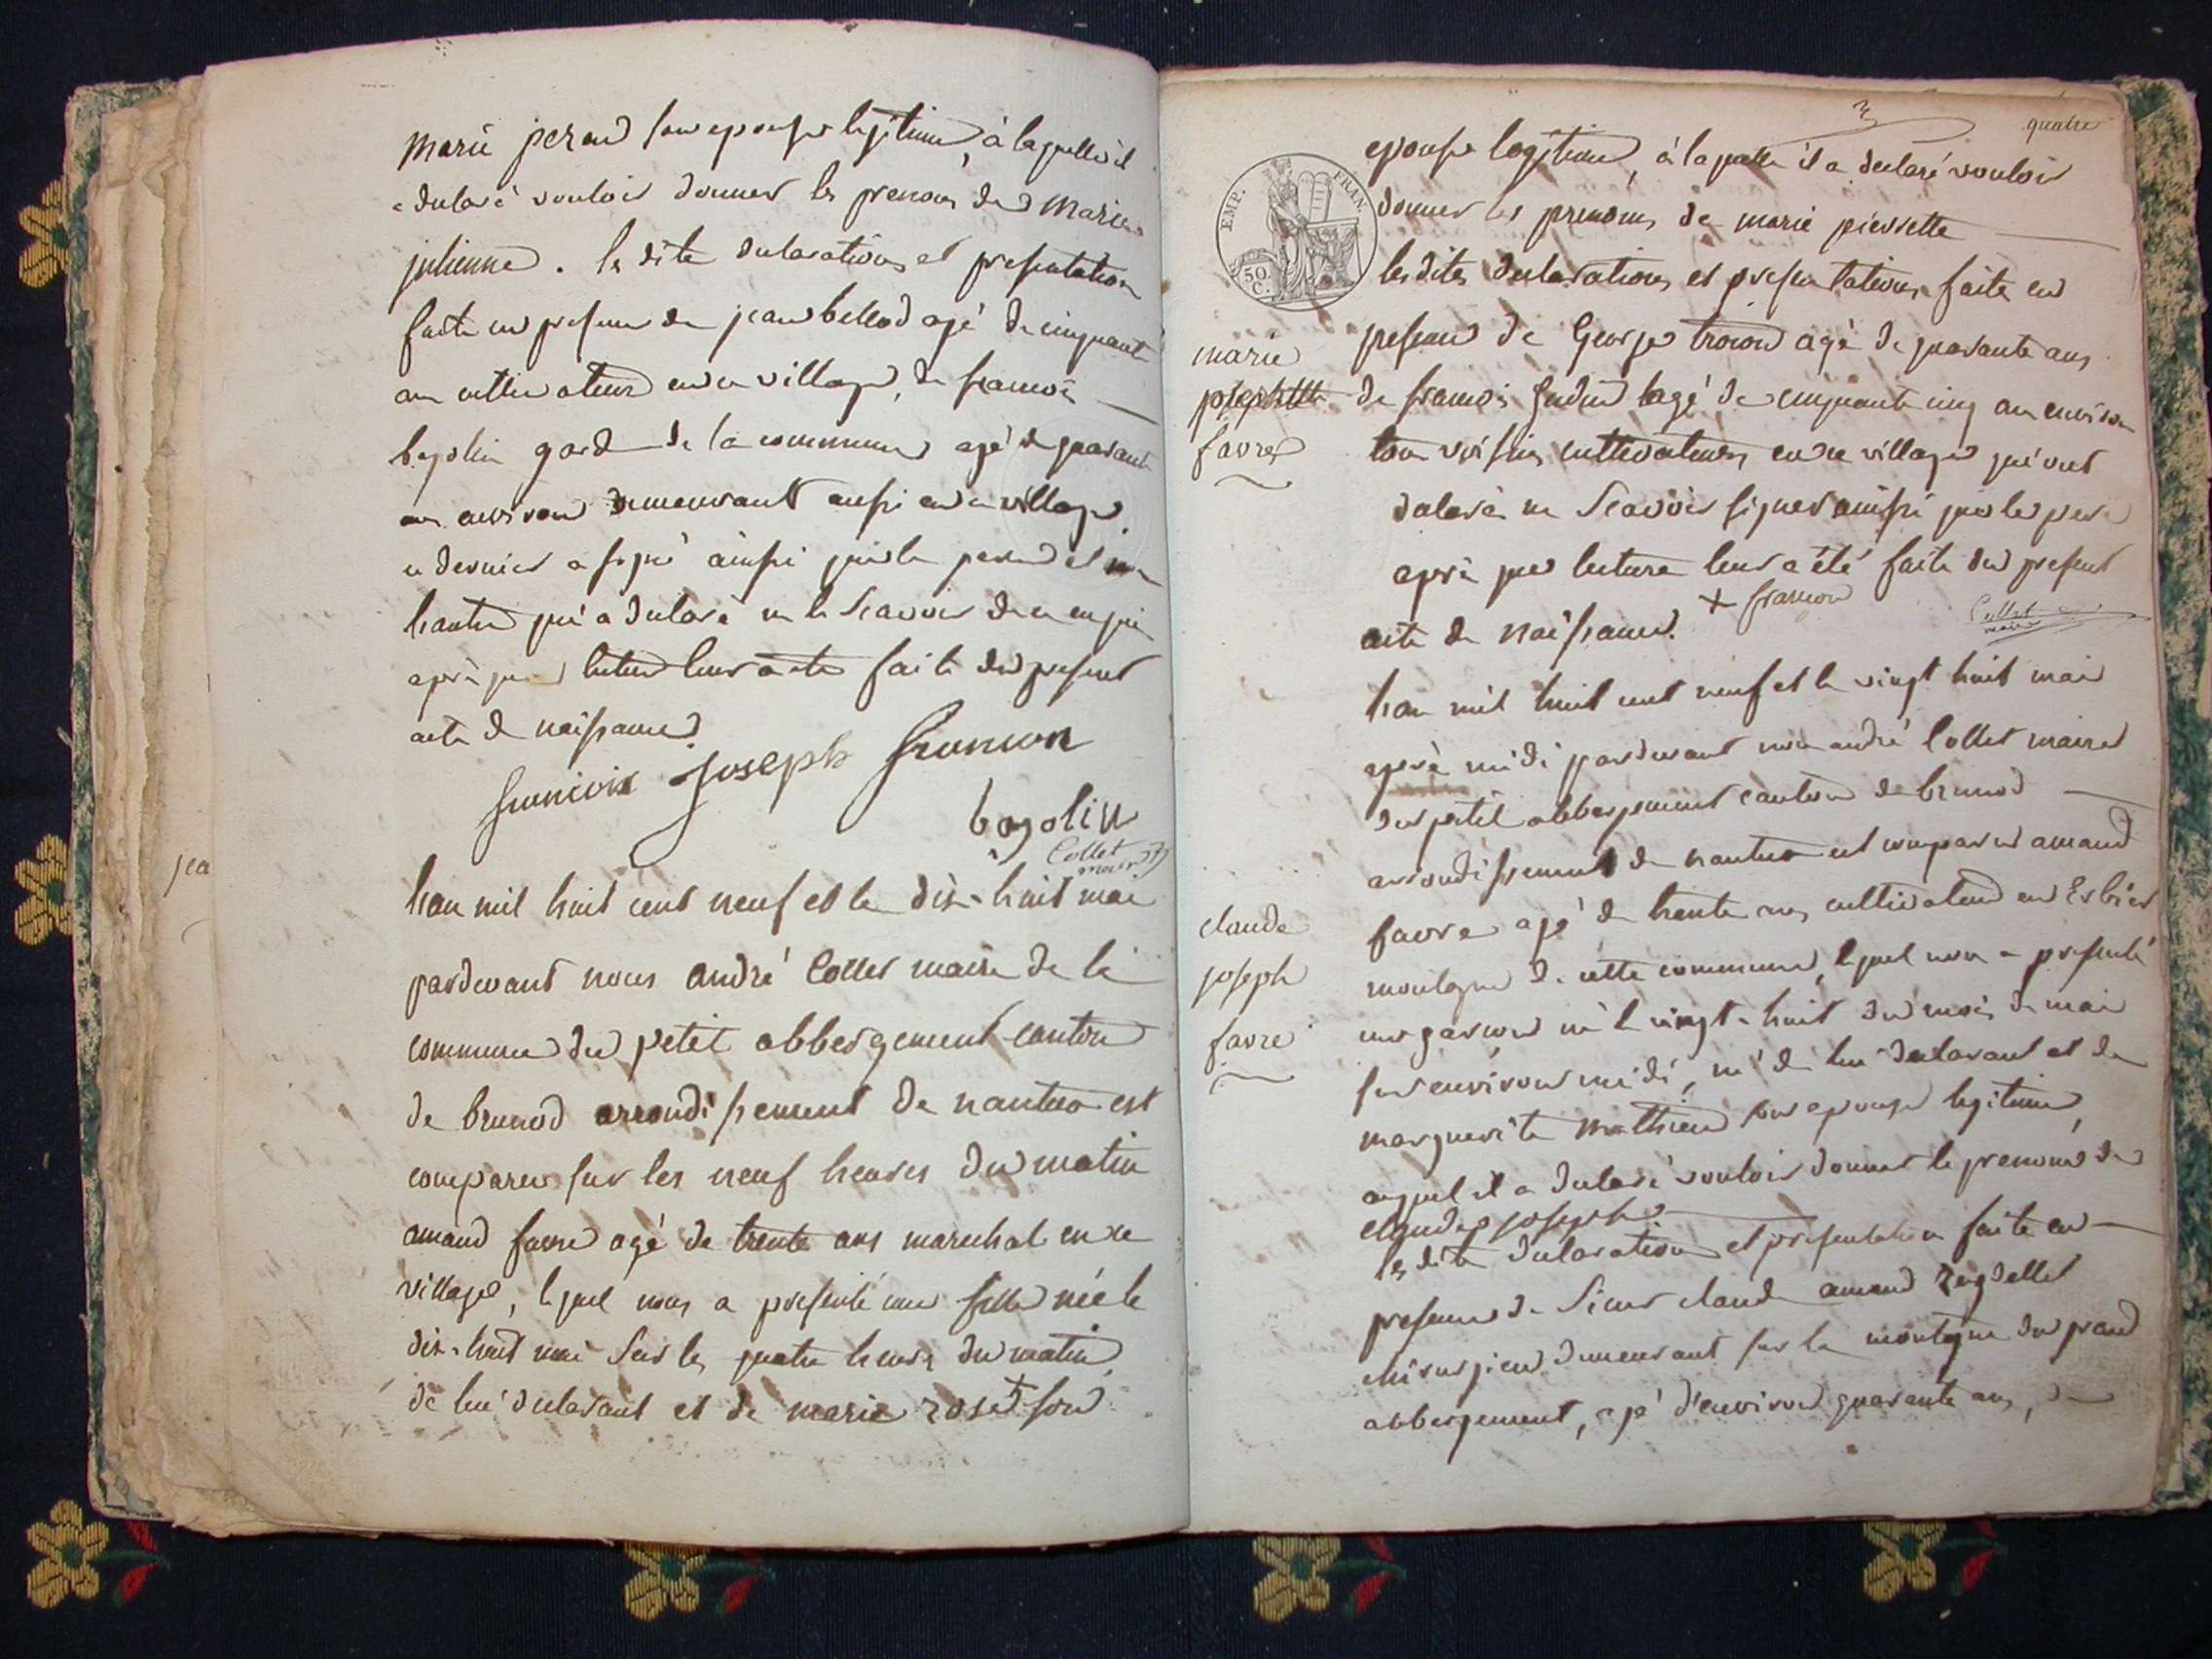 marie perand son epouse legitime, à laquelle il
a declaré vouloir donner les prenoms de marie
julienne. les dite declarations et presentation
faite en presence de jean bellod agé de cinquante
ans cultivateur en ce village, de francois
bozolin garde de la commune agé de quarante
ans environ demeurant aussi en ce village
ce dernier a signé ainsi que le pere et non
l'autre qui a declaré ne le scavoir de ce enquis
aprés que lecture leur a eté faite du present
acte de naissance
francois joseph francon
bozolin
Collet
maire
l'an mil huit cent neuf et le dix-huit mai
pardevant nous andré Collet maire de la
commune du petit abbergement canton
de brenod arrondissement de nantua est
comparu sur les neuf heures du matin
amand favre agé de trente ans marechal en ce
village, lequel nous a presenté une fille née le
dix-huit mai sur les quatre heures du matin
de lui declarant et de marie roset son
jea
quatre
EMP. FRAN.
50
C.
epouse legitime, à laquelle il a declaré vouloir
donner les prenoms de marie pierrette
les dites declarations et presentations faite en
presence de George troccon agé de quarante ans
de francois agé de cinquante cinq ans environ
tous voisins cultivateurs en ce village qui ont
declaré ne scavoir signer ainsi que le pere
aprés que lecture leur a été faite du present
acte de naissance. + francon
Collet
maire
marie
favre
l'an mil huit cent neuf et le vingt huit mai
aprés midi pardevant nous andré Collet maire
du petit abbergement canton de brenod
arrondissement de nantua est comparu amand
favre agé de trente ans cultivateur en
montagne de cette commune, lequel nous a presenté
un garcon né le vingt-huit du mois de mai
sur environ midi, né de lui declarant et de
marguerite mathieu son epouse legitime
auquel il a declaré vouloir donner le prenoms de
claude joseph
les dite declaration et presentation faite en
presence de Sieur claude amand
chirurgien demeurant sur la montagne du grand
abbergement, agé d'environ quarante ans, de
claude
joseph
favre